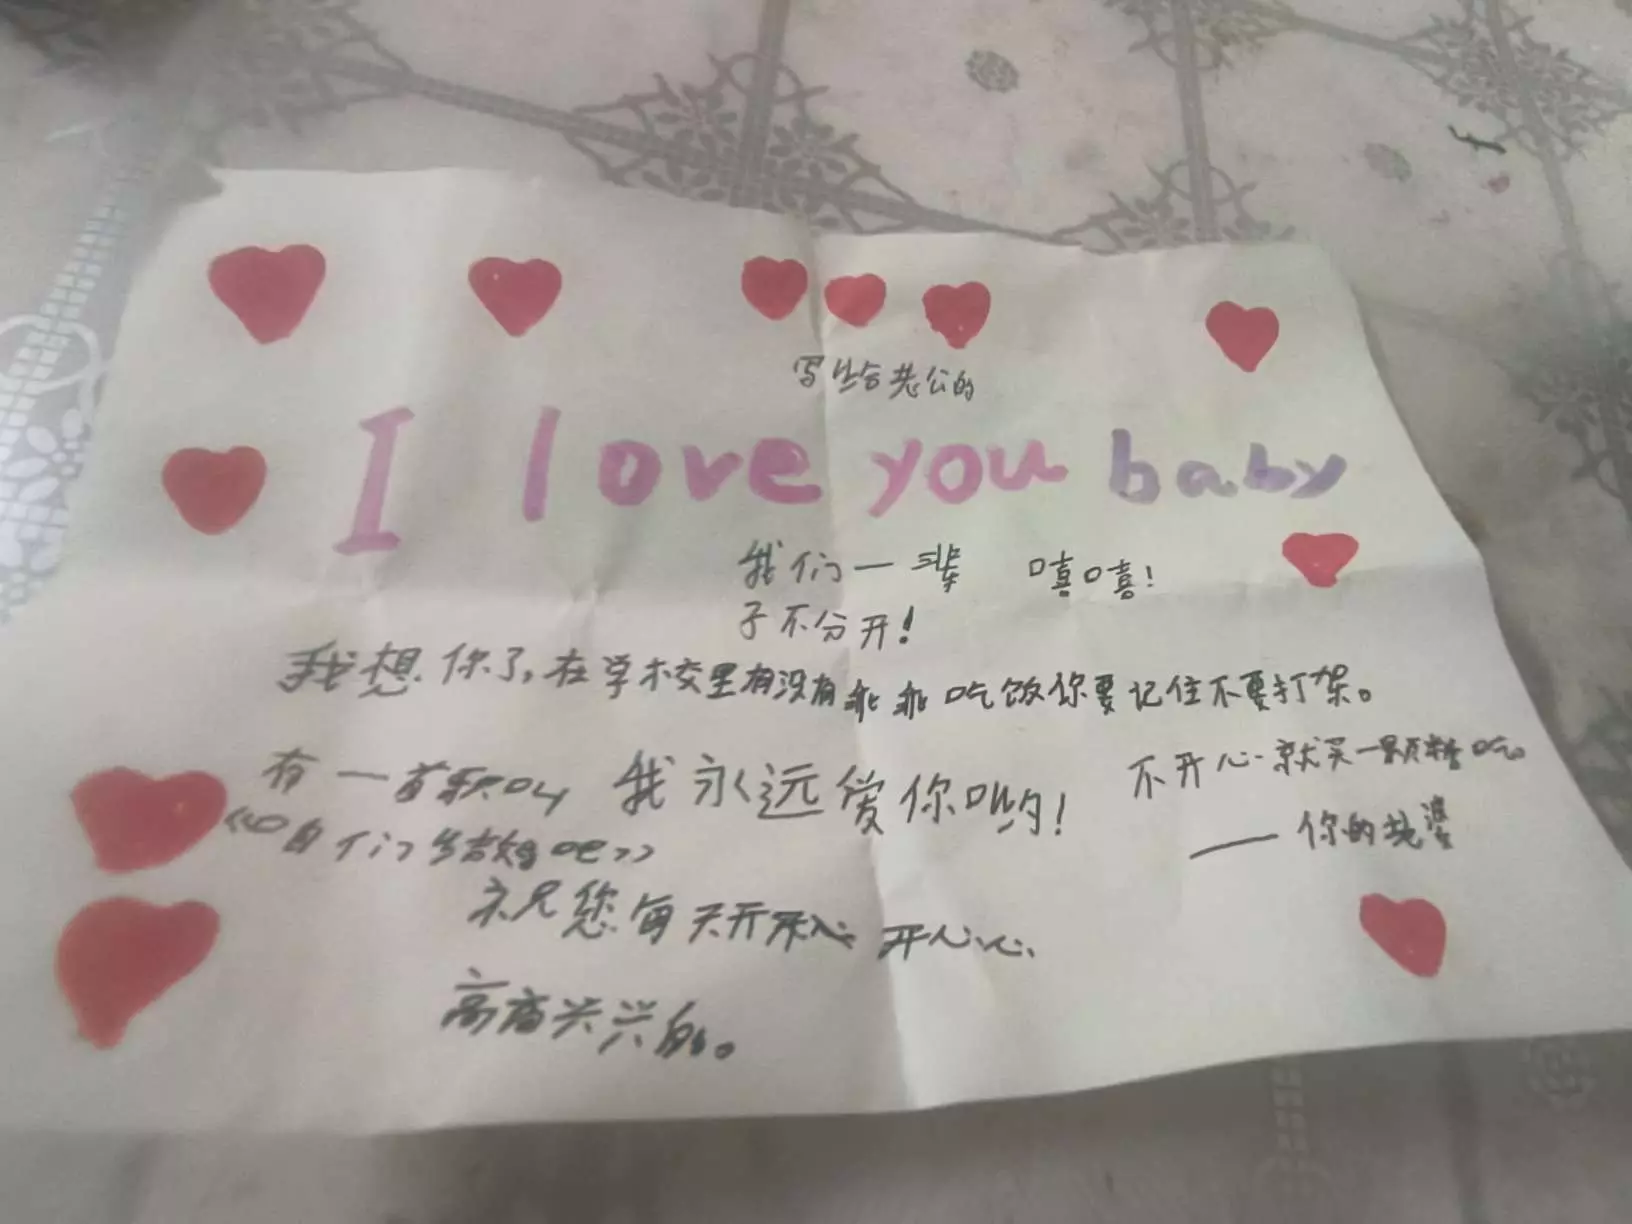 写给老公的
I love you baby
我们一辈 嘻嘻!
子不分开!
我想你了,在学校里有没有乖乖吃饭你要记住不要打架。
不开心就买一颗糖吃。
有一首歌叫 我永远爱你哟!
《咱们结婚吧》
——你的老婆
祝您每天开 开心心
高高兴兴的。